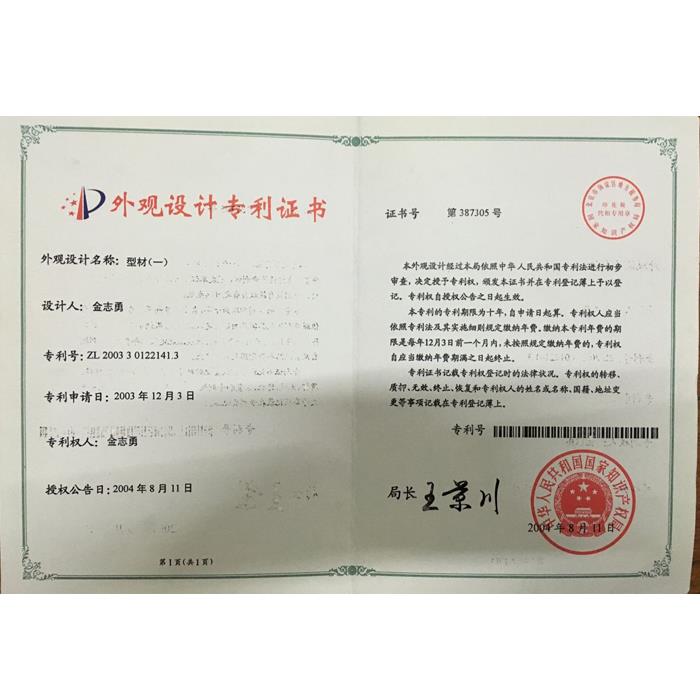 外观设计专利证书
外观设计名称：型材(一)
设计人：金志勇
专利号：ZL 2003 3 0122141.3
专利申请日：2003 年 12 月 3 日
专利权人：金志勇
授权公告日：2004 年 8 月 11 日
第 1 页 (共 1 页)
证书号 第 387305 号
印花税
代扣专用章
国家知识产权局
本外观设计经过本局依照中华人民共和国专利法进行初步
审查，决定授予专利权，颁发本证书并在专利登记簿上予以登
记。专利权自授权公告之日起生效。
本专利的专利权期限为十年，自申请日起算。专利权人应当
依照专利法及其实施细则规定缴纳年费。缴纳本专利年费的期
限是每年12月3日前一个月内，未按照规定缴纳年费的，专利权
自应当缴纳年费期满之日起终止。
专利证书记载专利权登记时的法律状况。专利权的转移、
质押、无效、终止、恢复和专利权人的姓名或名称、国籍、地址变
更等事项记载在专利登记簿上。
专利号
局长 王景川
中华人民共和国国家知识产权局
2004 年 8 月 11 日